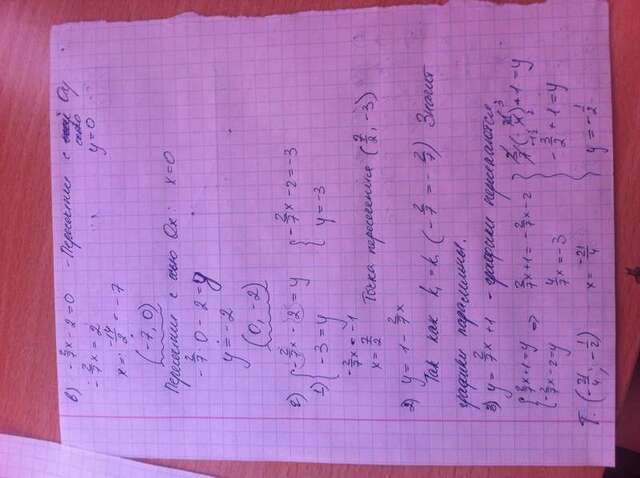 в) -2/7x - 2 = 0 - Пересечение с осью Oy
-2/7x = 2 y = 0
x = -14/2 = -7
(-7, 0)
Пересечение с осью Ox: x = 0
-2/7 · 0 - 2 = y
y = -2
(0, -2)
г)
1) { -2/7x - 2 = y { -2/7x - 2 = -3
{ -3 = y { y = -3
-2/7x = -1
x = 7/2 Тоска пересечения (7/2, -3)
2) y = 1 - 2/7x
Так как k₁ = k₁ (-2/7 = -2/7) Значит
графики паралельны.
3) y = 2/7x + 1 - графики пересекаются
{ 2/7x + 1 = y => 2/7x + 1 = -2/7x - 2 2/7 · (-21/4) + 1 = y
{ -2/7x - 2 = y 4/7x = -3 -3/2 + 1 = y
Т. (-21/4; -1/2) x = -21/4 y = -1/2